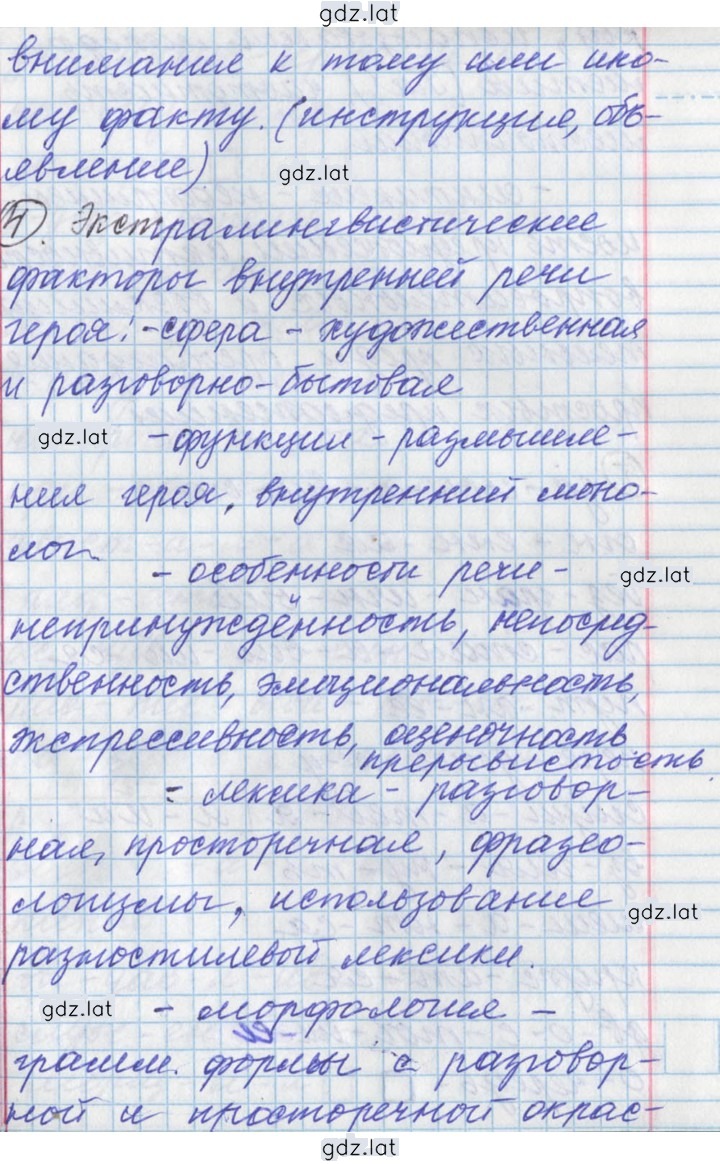 gdz.lat
внимания к тому или ино-
му факту. (инструкция, объ-
явление)
gdz.lat
4. Экстралингвистические
факторы внутренней речи
героя: -сфера - художественная
и разговорно-бытовая
gdz.lat -функции - размышле-
ния героя, внутренний моно-
лог.
- особенности речи -
gdz.lat
непринуждённость, непосред-
ственность, эмоциональность,
экспрессивность, оценочность
прерывистость
- лексика - разговор-
ная, просторечная, фразео-
логизмы, использование
gdz.lat
разностилевой лексики.
gdz.lat - морфология -
грамм. формы с разговор-
ной и просторечной окрас-
gdz.lat